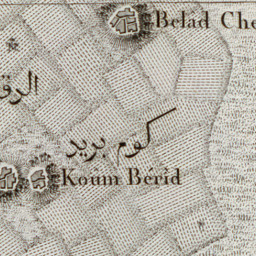 Belad Che
الرق
كوم بريد
Koùm Bérid